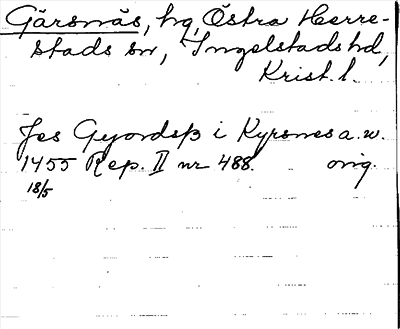 Gärsnäs, hg, Östra Herre-
stads sn, Ingelstads hd,
Krist. l.
Jes Gyordsß i Kyrsnes a. w.
1455 Rep. II nr 488. orig.
18/5